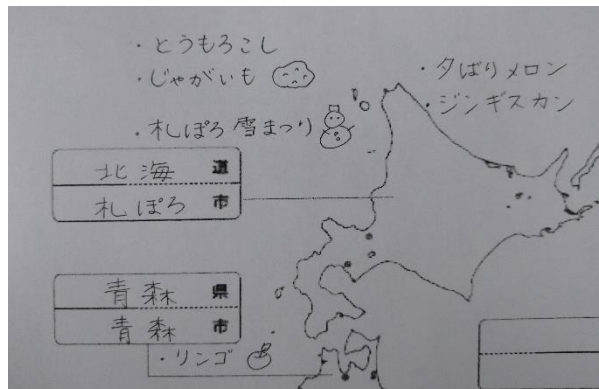 ・とうもろこし
・じゃがいも
・札ぽろ雪まつり
・夕ばりメロン
・ジンギスカン
北海道
札ぽろ市
青森県
青森市
・リンゴ